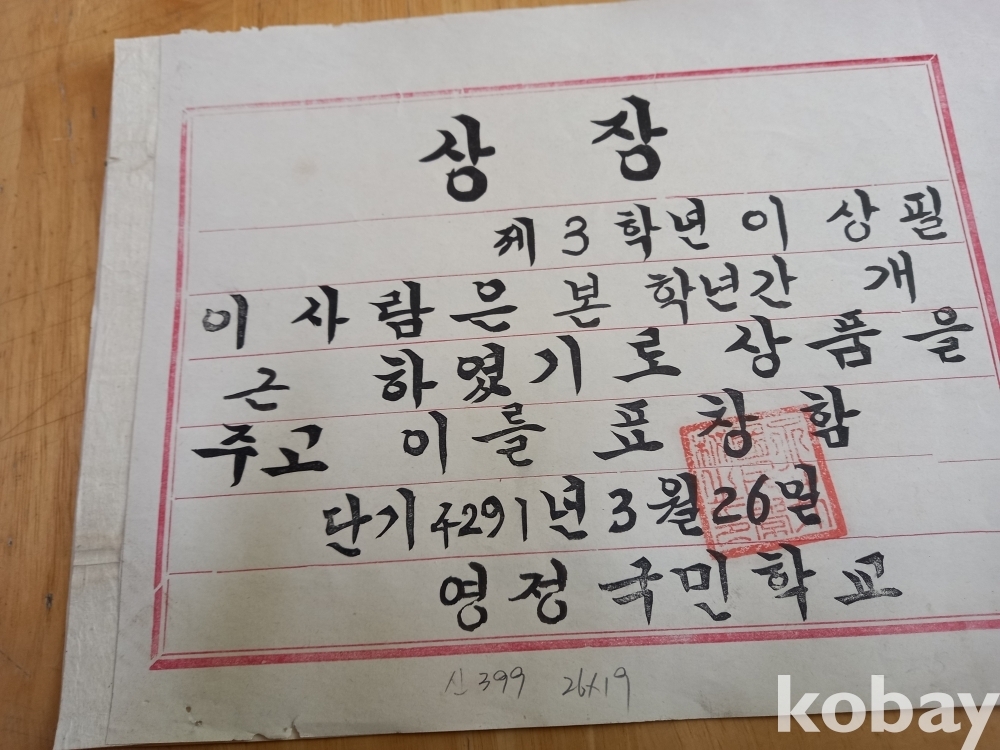 상 장
제 3 학년 이 상 필
이 사 람 은 본 학년간 개
근 하였기로 상품을
주고 이를 표창함
단기 4291년 3월 26일
영정 국민학교
신 399 26x19
kobay